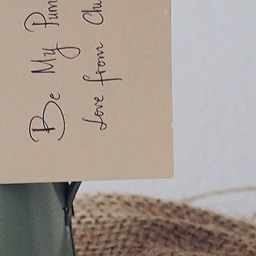 Be My Pum
Love from Chu